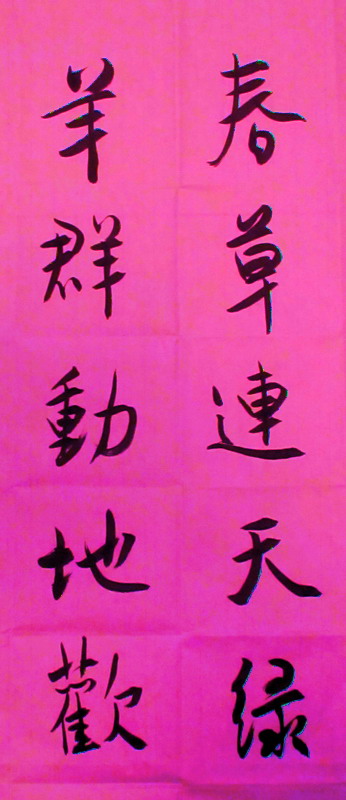 春草連天绿
羊群動地歡